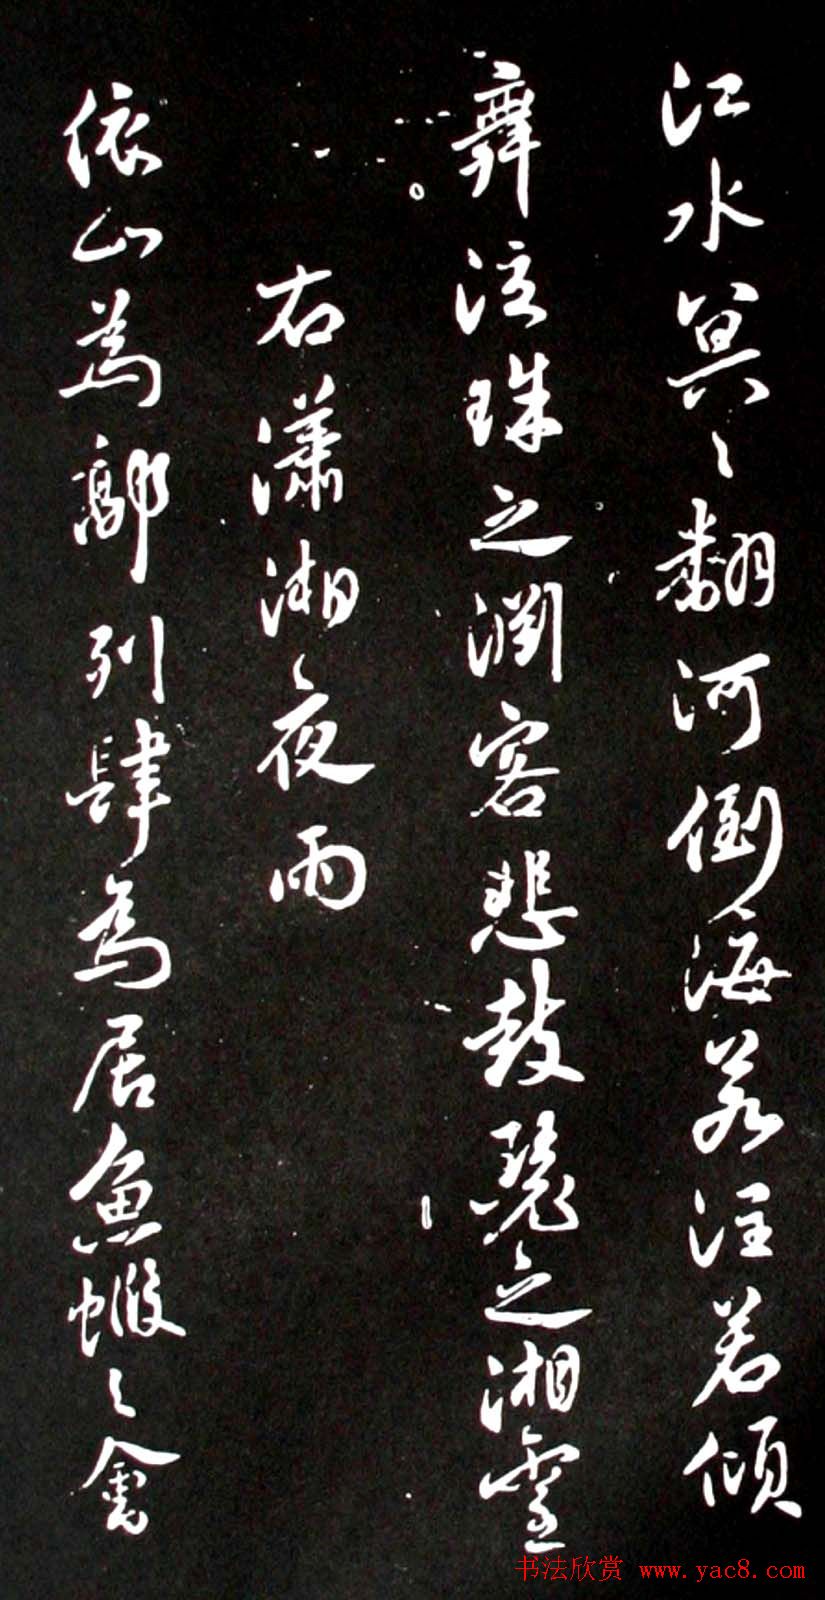 江水冥々翻河倒海若注若傾
舞泣珠之淵客悲鼓瑟之湘靈
右瀟湘夜雨
依山為郭列肆為居魚蝦之會
书法欣赏 www.yac8.com